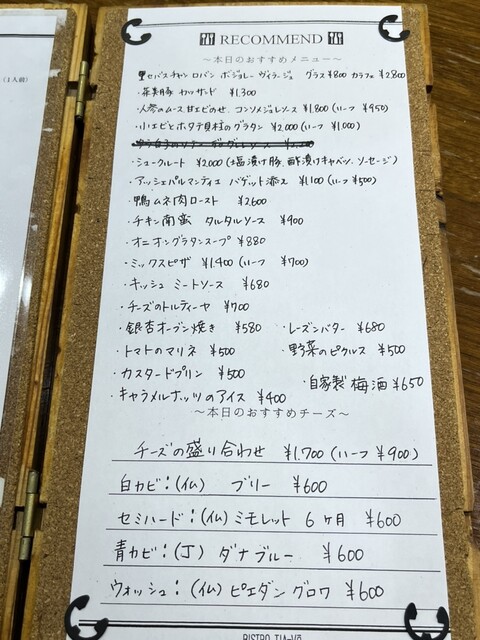 (1人前)
RECOMMEND
～本日のおすすめメニュー～
セバスチャン ロバン ボジョレー ヴィラージュ グラス¥800 カラフェ ¥2,800
・茶美豚 カツサンド ¥1,300
・人参のムース 甘エビのせ、コンソメジュレソース ¥1,800 (ハーフ ¥950)
・小エビとホタテ貝柱のグラタン ¥2,000 (ハーフ ¥1,000)
・シュークルート ¥2,000 (塩漬け豚、酢漬けキャベツ、ソーセージ)
・アッシェパルマンティエ バゲット添え ¥1,100 (ハーフ ¥500)
・鴨ムネ肉ロースト ¥2,600
・チキン南蛮 タルタルソース ¥900
・オニオングラタンスープ ¥880
・ミックスピザ ¥1,400 (ハーフ ¥700)
・キッシュ ミートソース ¥680
・チーズのトルティーヤ ¥700
・銀杏オーブン焼き ¥580 ・レーズンバター ¥680
・トマトのマリネ ¥500 ・野菜のピクルス ¥500
・カスタードプリン ¥500 ・自家製 梅酒 ¥650
・キャラメルナッツのアイス ¥400
～本日のおすすめチーズ～
チーズの盛り合わせ ¥1,700 (ハーフ ¥900)
白カビ:(仏) ブリー ¥600
セミハード:(仏) ミモレット 6ヶ月 ¥600
青カビ:(丁) ダナブルー ¥600
ウォッシュ:(仏) ピエダングロワ ¥600